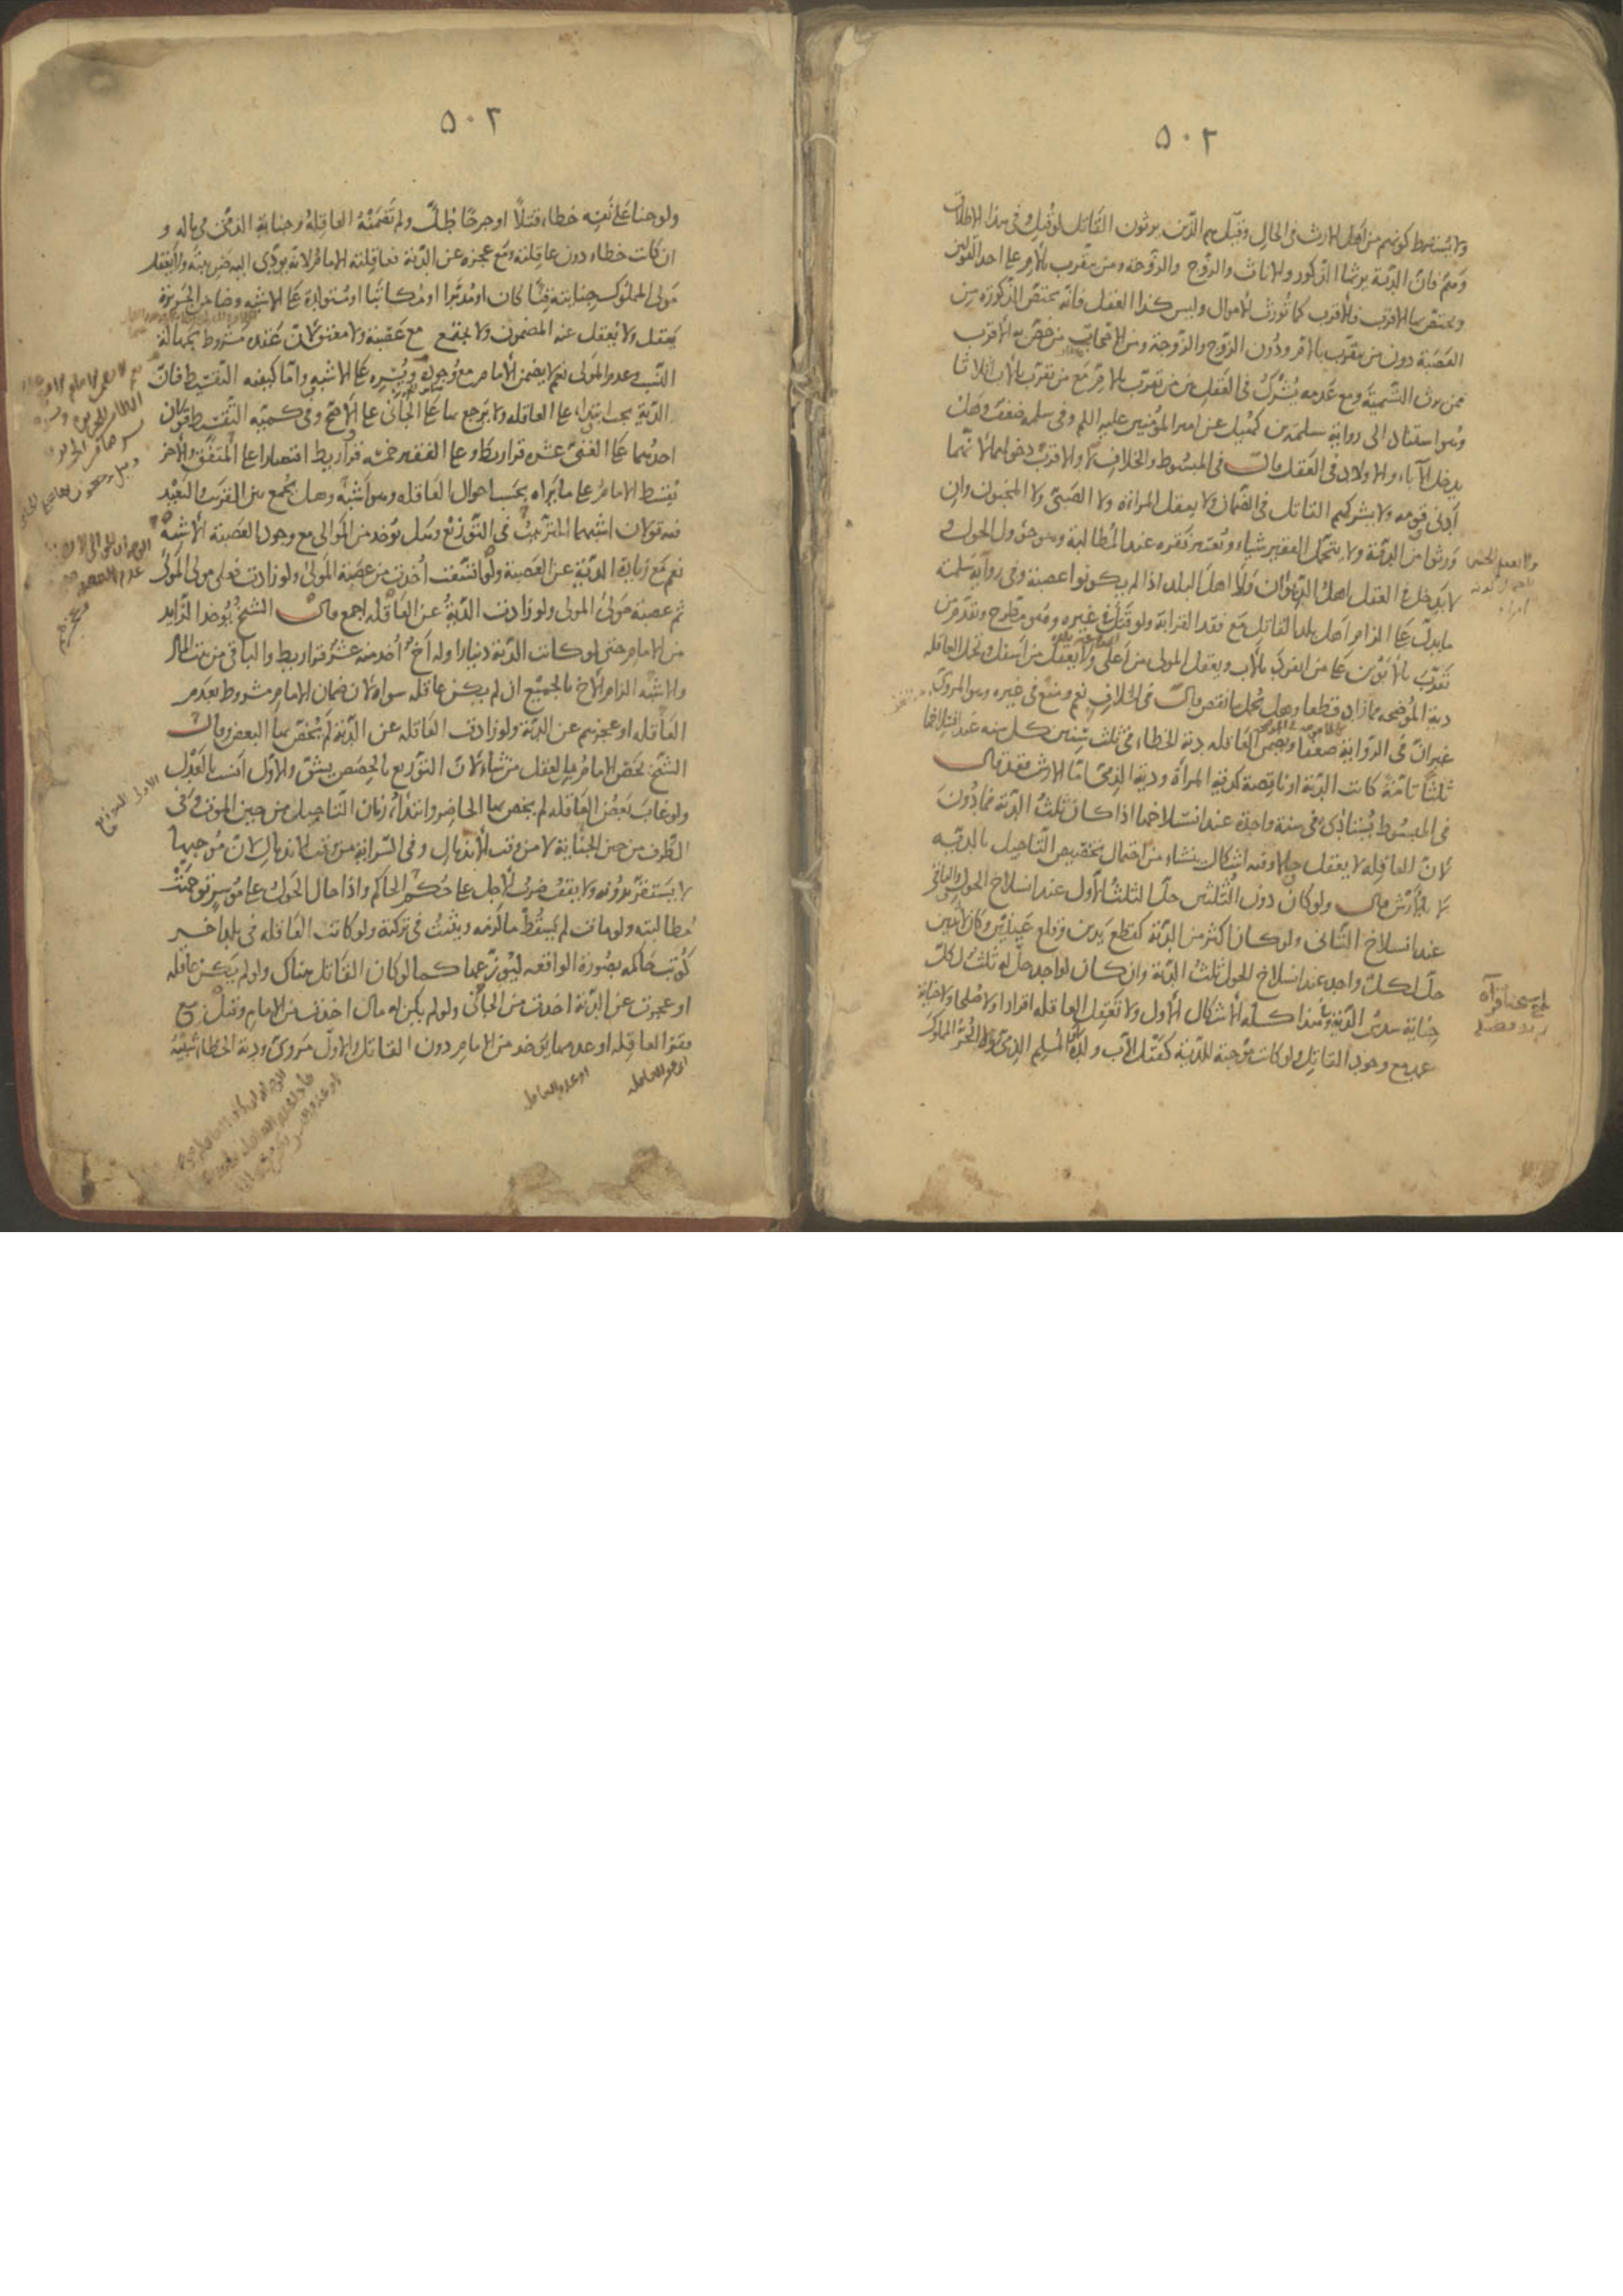 ٥٠٢
ولا يشترط كونهم من اهل الارث في الحال وقيل هم الذين يرثون القاتل لو قتل وفي هذا الاطلاق
وهم فان الدية يرثها الذكور والاناث والزوج والزوجة ومن يتقرب بالام على احد القولين
ويختص بها الاقرب فالاقرب كما تورث الاموال وليس كذا العقل فانه يختص الذكور من
العصبة دون من يتقرب بالام ودون الزوج والزوجة ومن الاصحاب من خص به الاقرب
ممن يرث التسمية ومع عدمه يشترك في العقل بين من تقرب بالام مع من تقرب بالاب اثلاثا
وهو استناد الى رواية سلمة بن كهيل عن امير المؤمنين عليه السلام وفي سلمة ضعف وهل
يدخل الآباء والاولاد في العقل قال في المبسوط والخلاف لا والاقرب دخولهما لانهما
ادنى قومه ولا يشركهم القاتل في الضمان ولا يعقل المرأة ولا الصبي ولا المجنون وان
ورثوا من الدية ولا يتحمل الفقير شيئا ويعتبر فقره عند المطالبة وهو حؤول الحول و
لا يدخل في العقل اهل الديوان ولا اهل البلد اذا لم يكونوا عصبة وفي رواية سلمة
ما يدل على الزام اهل بلد القاتل مع فقد القرابة ولو قتل في غيره وهو مطرح ويقدم من
تقرب بالابوين على من انفرد بالاب ويعقل المولى من اعلى ولا يعقل من اسفل وتحمل العاقلة
دية الموضحة فما زاد قطعا وهل تحمل ما نقص قال في الخلاف نعم ومنع في غيره وهو المروي
غير ان في الرواية ضعفا وتضمن العاقلة دية الخطاء في ثلث سنين كل سنة عند انسلاخها
ثلثا تامة كانت الدية او ناقصة كدية المرأة ودية الذمي اما الارش فقد قال
في المبسوط يستأدى في سنة واحدة عند انسلاخها اذا كان ثلث الدية فما دون
لان العاقلة لا يعقل حالا وفيه اشكال ينشاء من احتمال تخصيص التاجيل بالدية
لا بالارش قال ولو كان دون الثلثين حل الثلث الاول عند انسلاخ الحول والباقي
عند انسلاخ الثاني ولو كان اكثر من الدية كقطع يدين وقلع عينين وكان لاثنين
حل لكل واحد عند انسلاخ الحول ثلث الدية وان كان لواحد حل له ثلث لكل
جناية سدس الدية وفي هذا كله الاشكال الاول ولا تعقل العاقلة اقرارا ولا صلحا ولا جناية
عمد مع وجود القاتل ولو كانت موجبة للدية كقتل الاب ولده او المسلم الذمي او الحر المملوك
٥٠٢
ولو جنا على نفسه خطاء قتلا او جرحا طل ولم تضمنه العاقلة وجناية الذمي في ماله و
ان كانت خطاء دون عاقلته ومع عجزه عن الدية فعاقلته الامام لانه يودي اليه ضريبته ولا يعقل
مولى المملوك جنايته قنا كان او مدبرا او مكاتبا او مستولدة على الاشبه وضامن الجريرة
يعقل ولا يعقل عنه المضمون ولا يجتمع مع عصبة ولا معتق لان عقده مشروط بجهالة
النسب وعدم المولى نعم لا يضمن الامام مع وجوده ويسره على الاشبه واما كيفية التقسيط فان
الدية تجب ابتداء على العاقلة ولا يرجع بها على الجاني على الاصح وفي كمية التقسيط قولان
احدهما على الغني عشرة قراريط وعلى الفقير خمسة قراريط اقتصارا على المتفق والآخر
يقسط الامام على ما يراه بحسب احوال العاقلة وهو اشبه وهل يجمع بين القريب والبعيد
فيه قولان اشبههما الترتيب في التوزيع وهل يوخذ من الموالي مع وجود العصبة الاشبه
نعم مع زيادة الدية عن العصبة ولو اتسعت اخذت من عصبة المولى ولو زادت فعلى مولى المولى
ثم عصبة مولى المولى ولو زادت الدية عن العاقلة اجمع قال الشيخ يوخذ الزايد
من الامام حتى لو كانت الدية دينارا وله اخ اخذ منه عشرة قراريط والباقي من بيت المال
والاشبه الزام الاخ بالجميع ان لم يكن عاقلة سواه لان ضمان الامام مشروط بعدم
العاقلة او عجزهم عن الدية ولو زادت العاقلة عن الدية لم يختص بها البعض وقال
الشيخ يخص الامام بالعقل من شاء لان التوزيع بالحصص يشق والاول انسب بالعدل
ولو غاب بعض العاقلة لم يخص بها الحاضر وابتداء زمان التاجيل من حين الموت وفي
الطرف من حين الجناية لا من وقت الاندمال وفي السراية من وقت الاندمال لان موجبها
لا يستقر بدونه ولا يقف ضرب الاجل على حكم الحاكم واذا حال الحول على موسر توجهت
مطالبته ولو مات لم يسقط ما لزمه ويثبت في تركته ولو كانت العاقلة في بلد آخر
كوتب حاكمه بصورة الواقعة ليوزعها كما لو كان القاتل هناك ولو لم يكن عاقلة
او عجزت عن الدية اخذت من الجاني ولو لم يكن له مال اخذت من الامام وقيل مع
فقر العاقلة او عدمها يوخذ من الامام دون القاتل والاول مروي ودية الخطاء شبيه